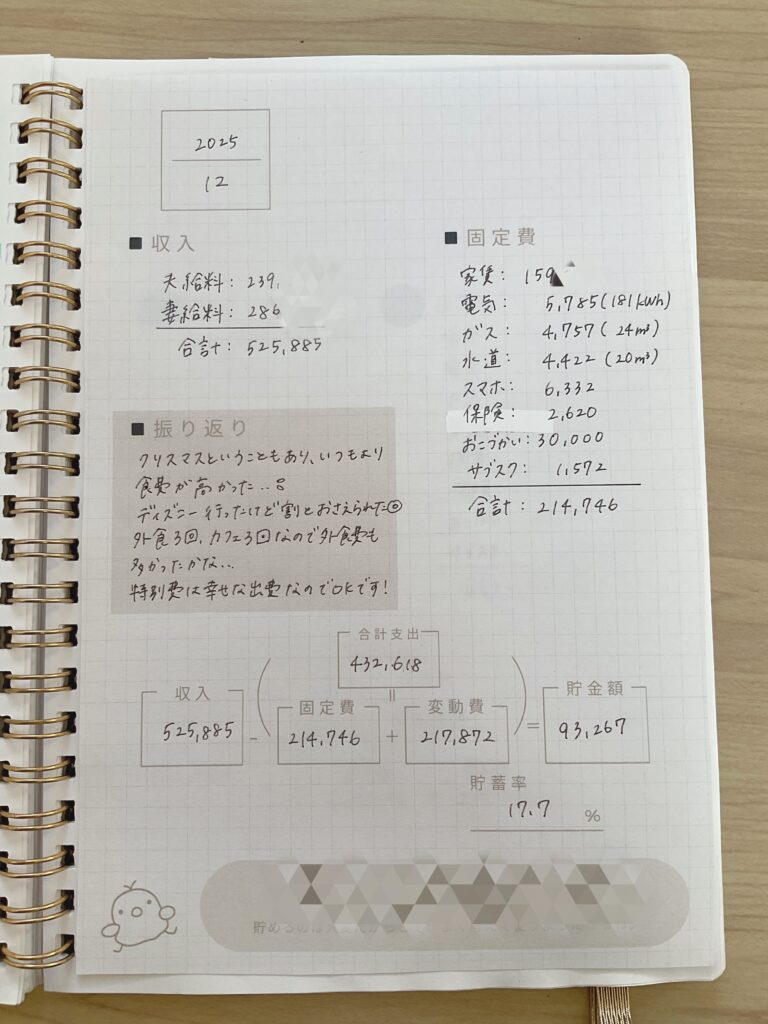 2025
12
■ 収入
夫給料: 239,
妻給料: 286
合計: 525,885
■ 固定費
家賃: 159
電気: 5,785(181kWh)
ガス: 4,757(24m³)
水道: 4,422(20m³)
スマホ: 6,332
保険: 2,620
おこづかい: 30,000
サブスク: 1,572
合計: 214,746
■ 振り返り
クリスマスということもあり、いつもより
食費が高かった..
ディズニー行ったけど割とおさえられた◎
外食3回、カフェ3回なので外食費も
多かったかな...
特別費は幸せな出費なのでOKです!
合計支出
432,618
=
収入
525,885
-
(
固定費
214,746
+
変動費
217,872
)
=
貯金額
93,267
貯蓄率
17.7 %